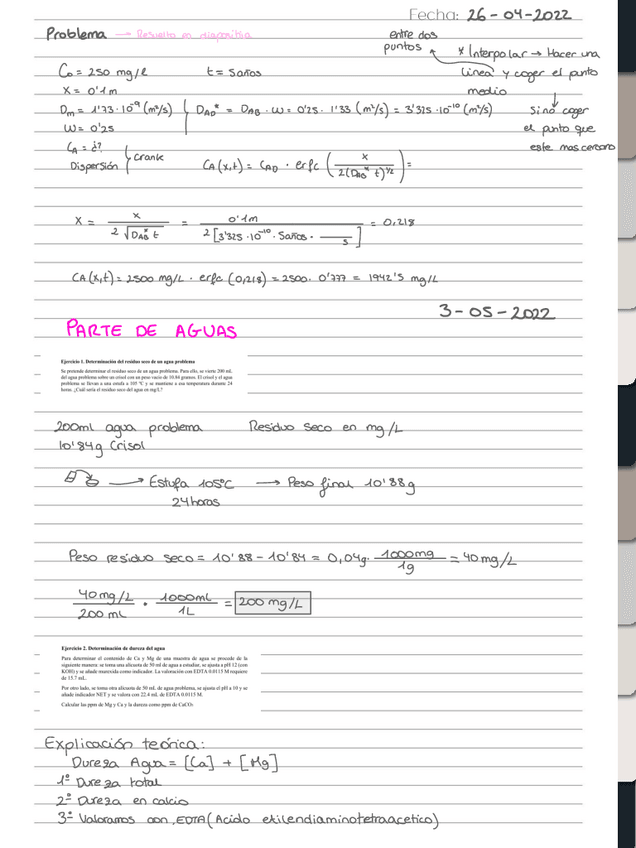 Fecha: 26-04-2022
Problema → Resuelto en diapositiva
entre dos puntos
* Interpolar → Hacer una línea y coger el punto medio
Si no coger el punto que este mas cercano
C₀ = 250 mg/l t = 5 años
X = 0'1m
Dm = 1'33·10⁻⁹ (m²/s) D_AB* = D_AB · ω = 0'25 · 1'33 (m²/s) = 3'325·10⁻¹⁰ (m²/s)
ω = 0'25
C_A = ¿?
Dispersión
Crank
C_A(x,t) = C_A0 · erfc (x / 2(D_AB* t)^1/2) =
X = x / 2√D_AB* t = 0'1m / 2[3'325·10⁻¹⁰ · 5años · ___ / s] = 0,218
C_A(x,t) = 2500 mg/L · erfc (0,218) = 2500 · 0'777 = 1942'5 mg/L
3-05-2022
PARTE DE AGUAS
Ejercicio 1. Determinación del residuo seco de un agua problema
Se pretende determinar el residuo seco de un agua problema. Para ello, se vierte 200 mL
del agua problema sobre un crisol con un peso vacío de 10.84 gramos. El crisol y el agua
problema se llevan a una estufa a 105 ºC y se mantiene a esa temperatura durante 24
horas. ¿Cuál sería el residuo seco del agua en mg/L?
200ml agua problema Residuo seco en mg/L
10'84g Crisol
→ Estufa 105ºC → Peso final 10'88g
24horas
Peso residuo seco = 10'88 - 10'84 = 0,04g · 1000mg / 1g = 40 mg/L
40 mg/L / 200 mL · 1000mL / 1L = 200 mg/L
Ejercicio 2. Determinación de dureza del agua
Para determinar el contenido de Ca y Mg de una muestra de agua se procede de la
siguiente manera: se toma una alícuota de 50 ml de agua a estudiar, se ajusta a pH 12 (con
KOH) y se añade murexida como indicador. La valoración con EDTA 0.0115 M requiere
de 15.7 mL.
Por otro lado, se toma otra alícuota de 50 mL de agua problema, se ajusta el pH a 10 y se
añade indicador NET y se valora con 22.4 mL de EDTA 0.0115 M.
Calcular las ppm de Mg y Ca y la dureza como ppm de CaCO₃
Explicación teórica:
Dureza Agua = [Ca] + [Mg]
1º Dureza total
2º Dureza en calcio
3º Valoramos con EDTA (Acido etilendiaminotetraacetico)